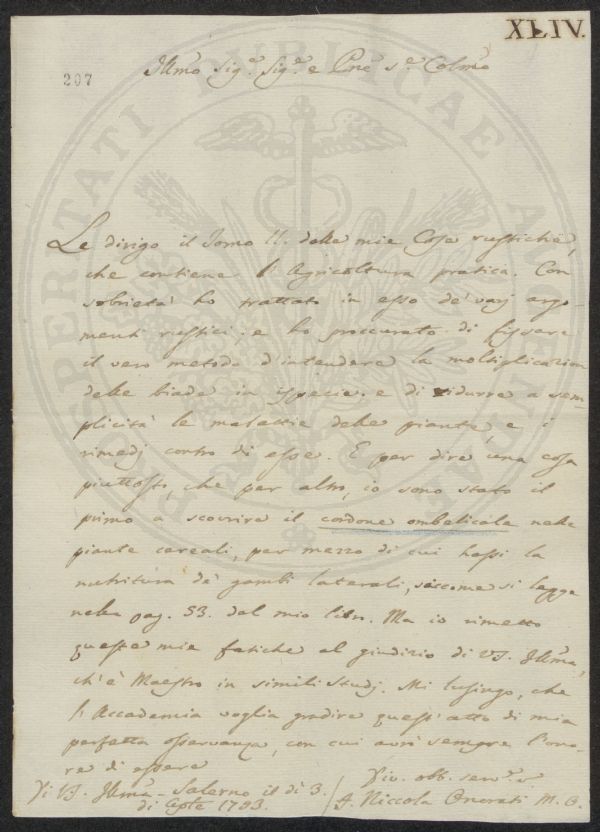 XLIV.
207
Illmo Sig.e Sig.e e Pne Se Colmo
Le dirigo il Tomo II. delle mie Cose rustiche,
che contiene l'Agricoltura pratica. Con
sobrietà ho trattato in esso de' varj argo-
menti rustici; e ho proccurato di fissare
il vero metodo d'intendere la moltiplicazion
delle biade in ispecie: e di ridurre a sem-
plicità le malattie delle piante, e i
rimedj contro di esse. E per dire una cosa
piuttosto, che per altro, io sono stato il
primo a scovrire il cordone ombelicale nelle
piante cereali, per mezzo di cui hassi la
nutritura de' gambi laterali, siccome si legge
nella pag. 53. del mio libro. Ma io rimetto
queste mie fatiche al giudizio di VS. Illma,
ch'è Maestro in simili studj. Mi lusingo, che
l'Accademia voglia gradire quest'atto di mia
perfetta osservanza, con cui avrò sempre l'ono-
re di essere
Di VS. Illma - Salerno il dì 3.
di 1793.
Div. obb. serv.e
F. Niccola Onorati M. O.
PROSPERITATI PUBLICAE AUGENDAE